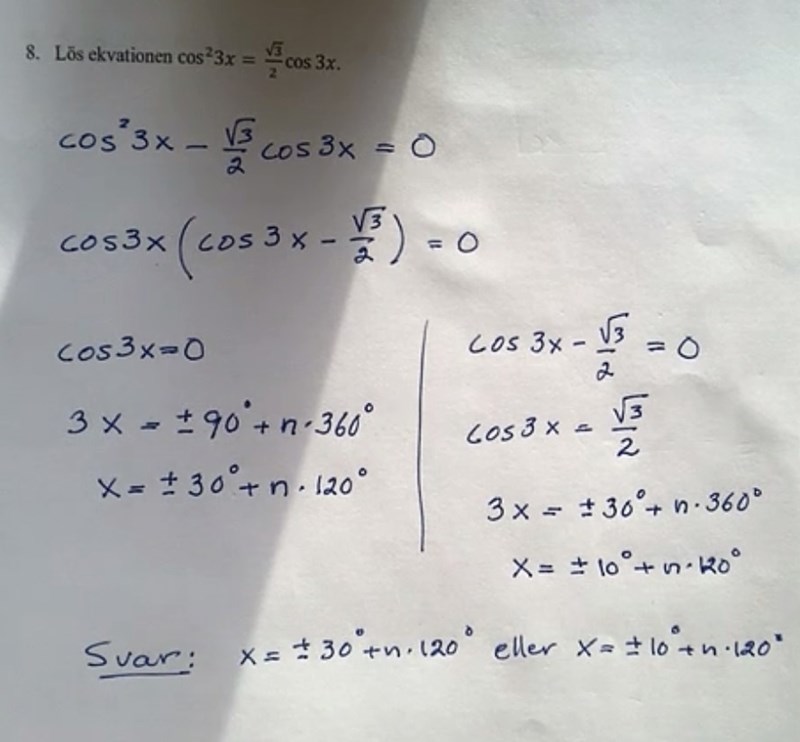 8. Lös ekvationen cos²3x = √3/2 cos 3x.
cos²3x − √3/2 cos 3x = 0
cos3x (cos 3x − √3/2) = 0
cos3x=0
3x = ±90° + n·360°
x = ±30° + n·120°
cos 3x − √3/2 = 0
cos 3x = √3/2
3x = ±30° + n·360°
x = ±10° + n·120°
Svar: x = ±30° + n·120° eller x = ±10° + n·120°